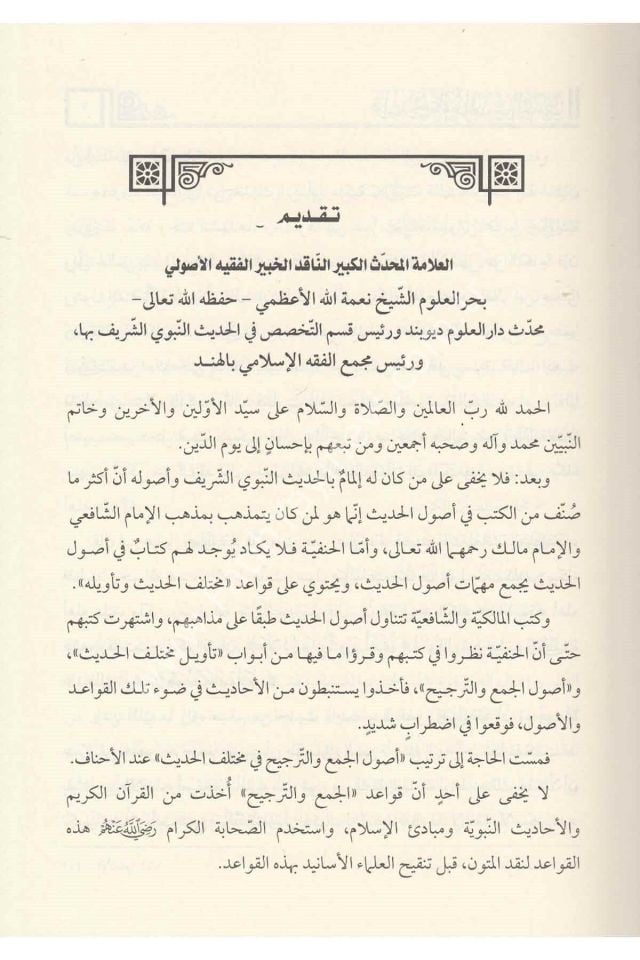 تقديم
العلامة المحدّث الكبير النّاقد الخبير الفقيه الأصولي
بحر العلوم الشّيخ نعمة الله الأعظمي - حفظه الله تعالى-
محدّث دار العلوم ديوبند ورئيس قسم التّخصص في الحديث النّبوي الشّريف بها،
ورئيس مجمع الفقه الإسلامي بالهند
الحمد لله ربّ العالمين والصّلاة والسّلام على سيّد الأوّلين والأخرين وخاتم
النّبيّين محمد وآله وصحبه أجمعين ومن تبعهم بإحسانٍ إلى يوم الدّين.
وبعد: فلا يخفى على من كان له إلمامٌ بالحديث النّبوي الشّريف وأصوله أنّ أكثر ما
صُنّف من الكتب في أصول الحديث إنّما هو لمن كان يتمذهب بمذهب الإمام الشّافعي
والإمام مالك رحمهما الله تعالى، وأمّا الحنفيّة فلا يكاد يُوجد لهم كتابٌ في أصول
الحديث يجمع مهمّات أصول الحديث، ويحتوي على قواعد «مختلف الحديث وتأويله».
وكتب المالكيّة والشّافعيّة تتناول أصول الحديث طبقًا على مذاهبهم، واشتهرت كتبهم
حتّى أنّ الحنفيّة نظروا في كتبهم وقرؤا ما فيها من أبواب «تأويل مختلف الحديث»،
و«أصول الجمع والتّرجيح»، فأخذوا يستنبطون من الأحاديث في ضوء تلك القواعد
والأصول، فوقعوا في اضطرابٍ شديدٍ.
فمسّت الحاجة إلى ترتيب «أصول الجمع والتّرجيح في مختلف الحديث» عند الأحناف.
لا يخفى على أحدٍ أنّ قواعد «الجمع والتّرجيح» أُخذت من القرآن الكريم
والأحاديث النّبويّة ومبادئ الإسلام، واستخدم الصّحابة الكرام رَضِيَ اللَّهُ عَنْهُمْ هذه
القواعد لنقد المتون، قبل تنقيح العلماء الأسانيد بهذه القواعد.